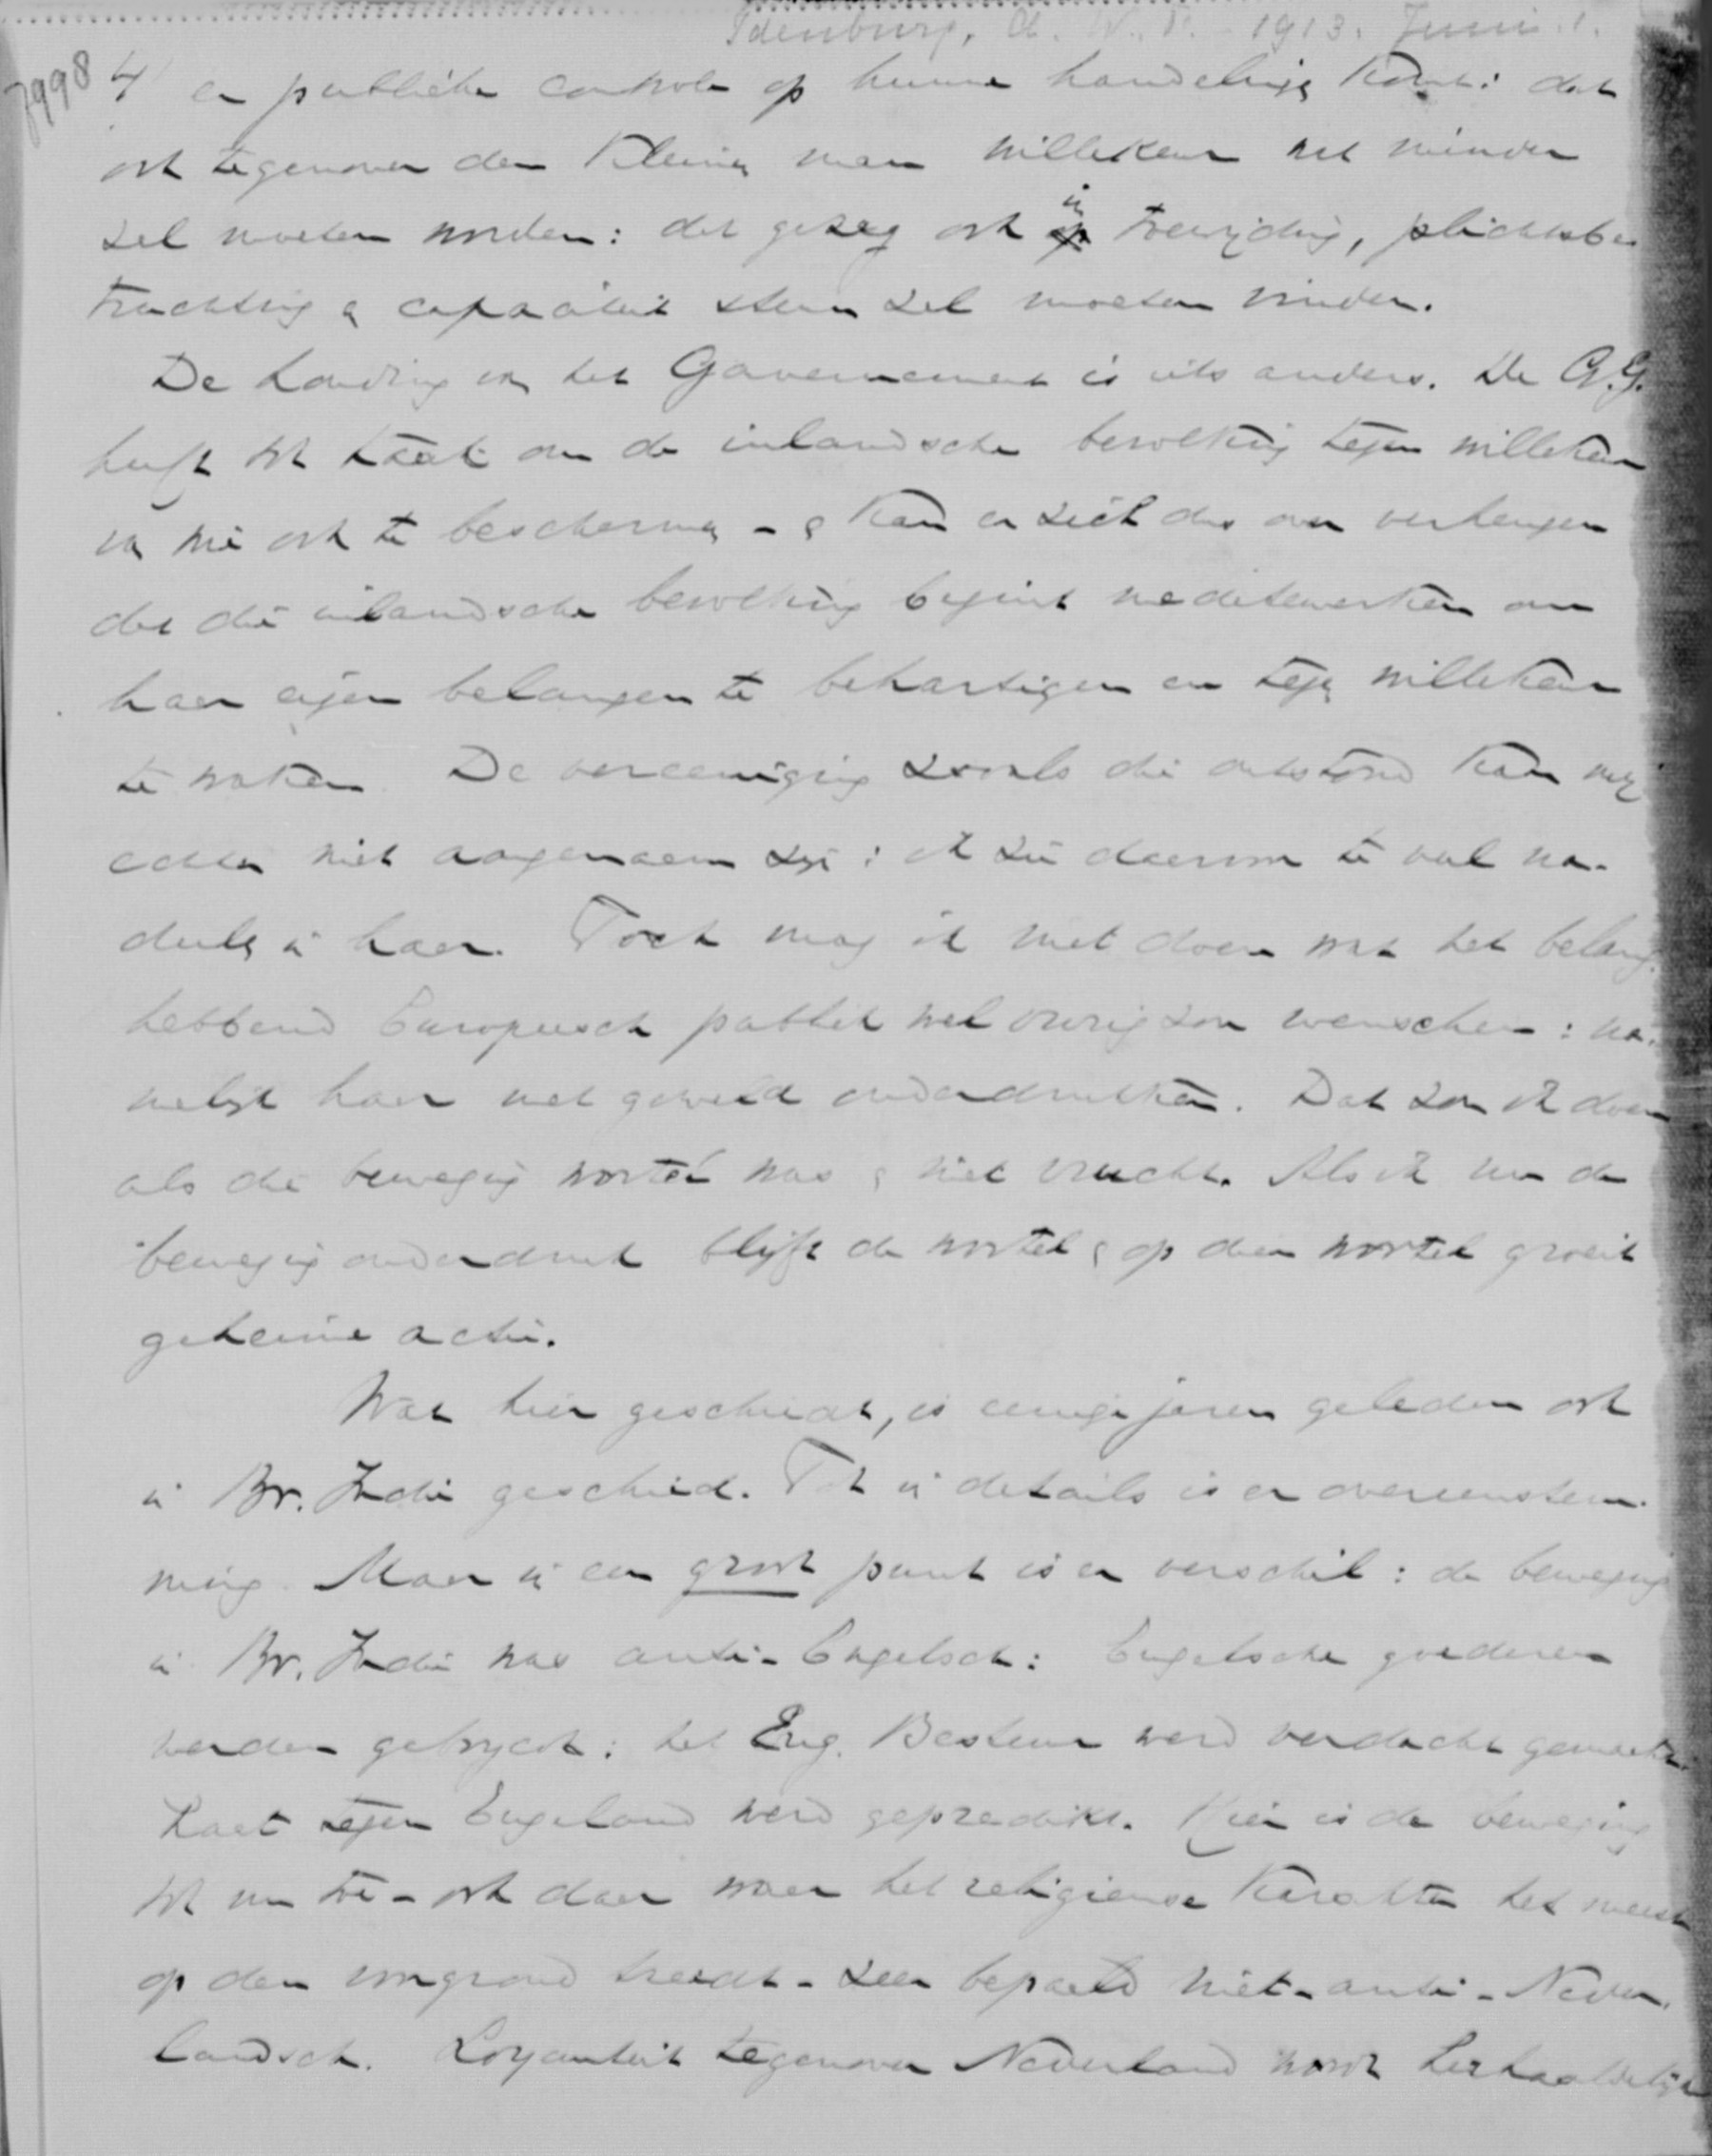 Idenburg, A. W. F. 1913. Juni 1.
7998
4 er publieke controle op hunne handelingen komt: dat
ook tegenover den kleinen man willekeur het minder
zal moeten worden: dat gezag ook in toewijding, plichtsbe
trachting & capaciteit steun zal moeten vinden.
De houding van het Gouvernement is iets anders. De G.G.
heeft tot taak om de inlandsche bevolking tegen willekeur
van wie ook te beschermen - & kan er zich dus over verheugen
dat die inlandsche bevolking begint mede te werken om
haar eigen belangen te behartigen en tegen willekeur
te waken. De vereeniging zooals die ontstond kan mij
echter niet aangenaam zijn: ik zie daarvoor te veel na-
deelen in haar. Toch mag ik niet doen wat het belang-
hebbend Europeesch publiek wel vurig zou wenschen: na-
melijk haar met geweld onderdrukken. Dat zou ik doen
als die beweging wortel was & niet vrucht. Als ik nu de
beweging onderdruk blijft de wortel & op dien wortel groeit
geheime actie.
Wat hier geschiedt, is eenige jaren geleden ook
in Br. Indië geschied. Tot in details is er overeenstem-
ming. Maar in een groot punt is er verschil: de beweging
in Br. Indië was anti-Engelsch: Engelsche goederen
werden geboycot: het Eng. Bestuur werd verdacht gemaakt.
Haat tegen Engeland werd gepredikt. Hier is de beweging
tot nu toe - ook daar waar het religieuse karakter het meest
op den voorgrond treedt - zeer bepaald niet-anti-Neder-
landsch. Loyauteit tegenover Nederland wordt herhaaldelijk